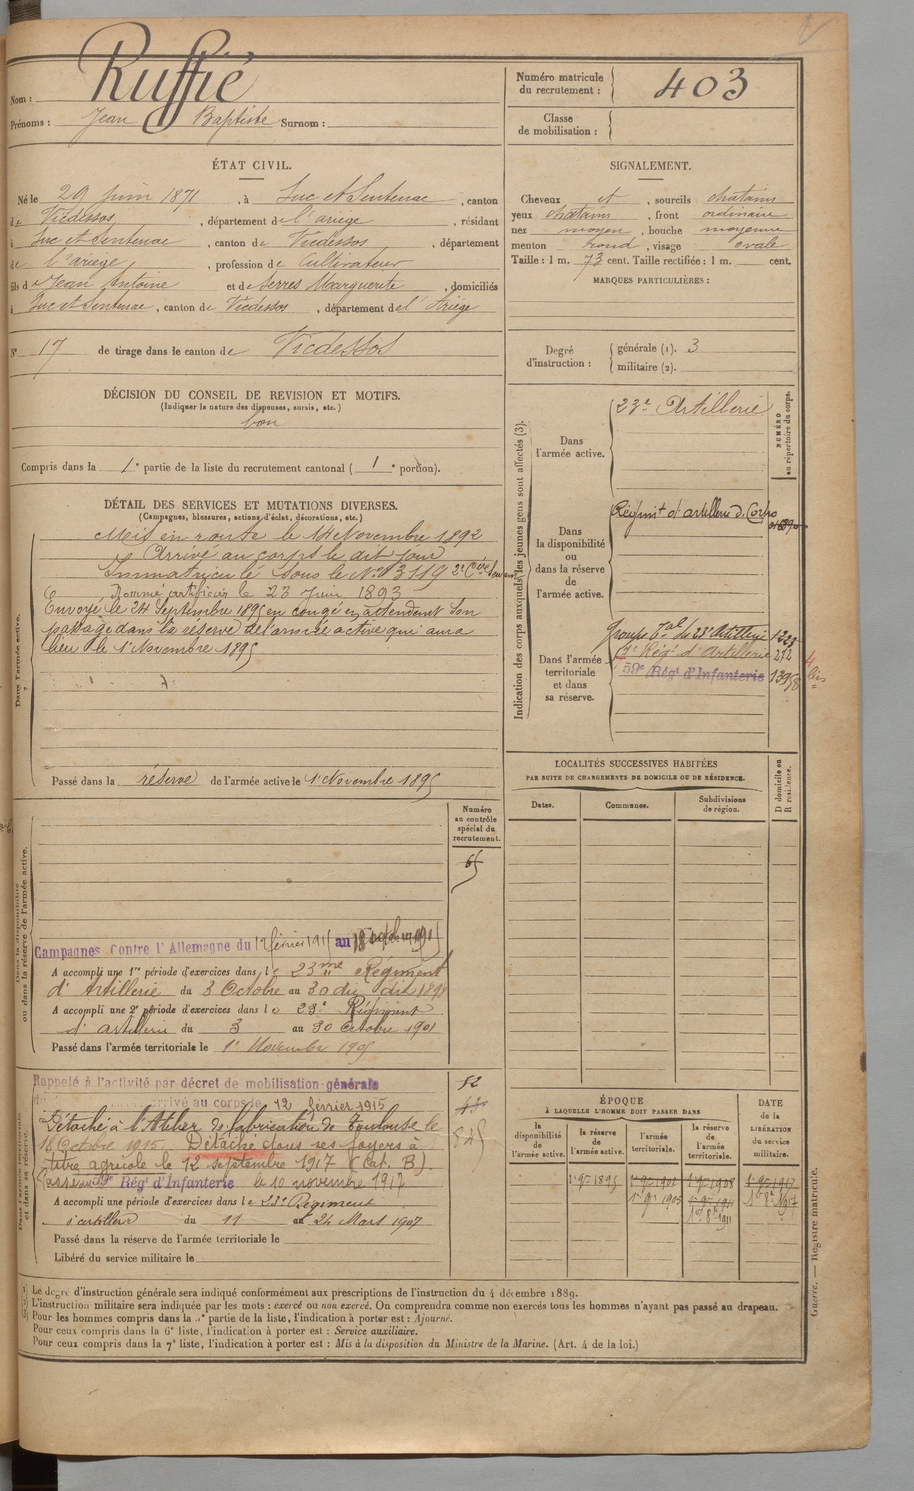 Nom : Ruffié
Prénoms : Jean Baptiste Surnom :
Numéro matricule du recrutement : 403
Classe de mobilisation :
ÉTAT CIVIL.
Né le 29 juin 1871, à Suc et Sentenac, canton
de Vicdessos, département de l'ariège, résidant
à Suc et Sentenac, canton de Vicdessos, département
de l'ariège, profession de Cultivateur
fils de Jean Antoine et de Serres Marguerite, domiciliés
à Suc et Sentenac, canton de Vicdessos, département de l'Ariège
N° 17 de tirage dans le canton de Vicdessos
SIGNALEMENT.
Cheveux et, sourcils chatains
yeux chatains, front ordinaire
nez moyen, bouche moyenne
menton rond, visage ovale
Taille : 1 m. 73 cent. Taille rectifiée : 1 m. cent.
MARQUES PARTICULIÈRES :
Degré d'instruction : générale (1). 3
militaire (2).
DÉCISION DU CONSEIL DE REVISION ET MOTIFS.
(Indiquer la nature des dispenses, sursis, etc.)
bon
Compris dans la 1e partie de la liste du recrutement cantonal (1e portion).
DÉTAIL DES SERVICES ET MUTATIONS DIVERSES.
(Campagnes, blessures, actions d'éclat, décorations, etc.)
Dans l'armée active.
Mis en route le 14 Novembre 1892
Arrivé au corps le dit jour
Immatriculé sous le N° 3119 2e Cer Servant
Nommé artificier le 23 Juin 1893
Envoyé le 24 Septembre 1895 en congé en attendant son
passage dans la réserve de l'armée active qui aura
lieu le 1er Novembre 1895
Passé dans la réserve de l'armée active le 1er Novembre 1895
Indication des corps auxquels les jeunes gens sont affectés (3).
NUMÉRO au répertoire du corps.
Dans l'armée active.
23e Artillerie
Dans la disponibilité ou dans la réserve de l'armée active.
Régimt d'artillerie de Corps
Dans l'armée territoriale et dans sa réserve.
Groupe tal du 23e Artillerie 1233
Rég' d'Artillerie 272
59e Rég' d'Infanterie 13958
LOCALITÉS SUCCESSIVES HABITÉES
PAR SUITE DE CHANGEMENTS DE DOMICILE OU DE RÉSIDENCE.
D domicile ou R résidence.
Dates. Communes. Subdivisions de région.
Numéro au contrôle spécial du recrutement.
65
Dans la disponibilité ou dans la réserve de l'armée active.
Campagnes contre l'Allemagne du 12 février 1915 au 18 octobre 1915
A accompli une 1re période d'exercices dans le 23me Régiment
d'Artillerie du 3 Octobre au 30 du dit 1898
A accompli une 2e période d'exercices dans le 23e Régiment
d'artillerie du 3 au 30 Octobre 1901
Passé dans l'armée territoriale le 1er Novembre 1905
Dans l'armée territoriale et dans sa réserve.
Rappelé à l'activité par décret de mobilisation générale
arrivé au corps le 12 février 1915
Détaché à l'Atelier de fabrication de Toulouse le
18 Octobre 1915. Détaché dans ses foyers à
titre agricole le 12 septembre 1917 (Cat. B).
Passé au 59e Rég' d'Infanterie le 10 novembre 1917
A accompli une période d'exercices dans le 23e Régiment
d'artillerie du 11 au 24 Mars 1907
Passé dans la réserve de l'armée territoriale le
Libéré du service militaire le
52
845
ÉPOQUE
À LAQUELLE L'HOMME DOIT PASSER DANS
la disponibilité de l'armée active. la réserve de l'armée active. l'armée territoriale. la réserve de l'armée territoriale.
DATE de la LIBÉRATION du service militaire.
1er 9bre 1895
1er 9bre 1905
1er 8bre 1911
1er 8bre 1917
(1) Le degré d'instruction générale sera indiqué conformément aux prescriptions de l'instruction du 4 décembre 1889.
(2) L'instruction militaire sera indiquée par les mots : exercé ou non exercé. On comprendra comme non exercés tous les hommes n'ayant pas passé au drapeau.
(3) Pour les hommes compris dans la 5e partie de la liste, l'indication à porter est : Ajourné.
Pour ceux compris dans la 6e liste, l'indication à porter est : Service auxiliaire.
Pour ceux compris dans la 7e liste, l'indication à porter est : Mis à la disposition du Ministre de la Marine. (Art. 4 de la loi.)
Guerre. — Registre matricule.